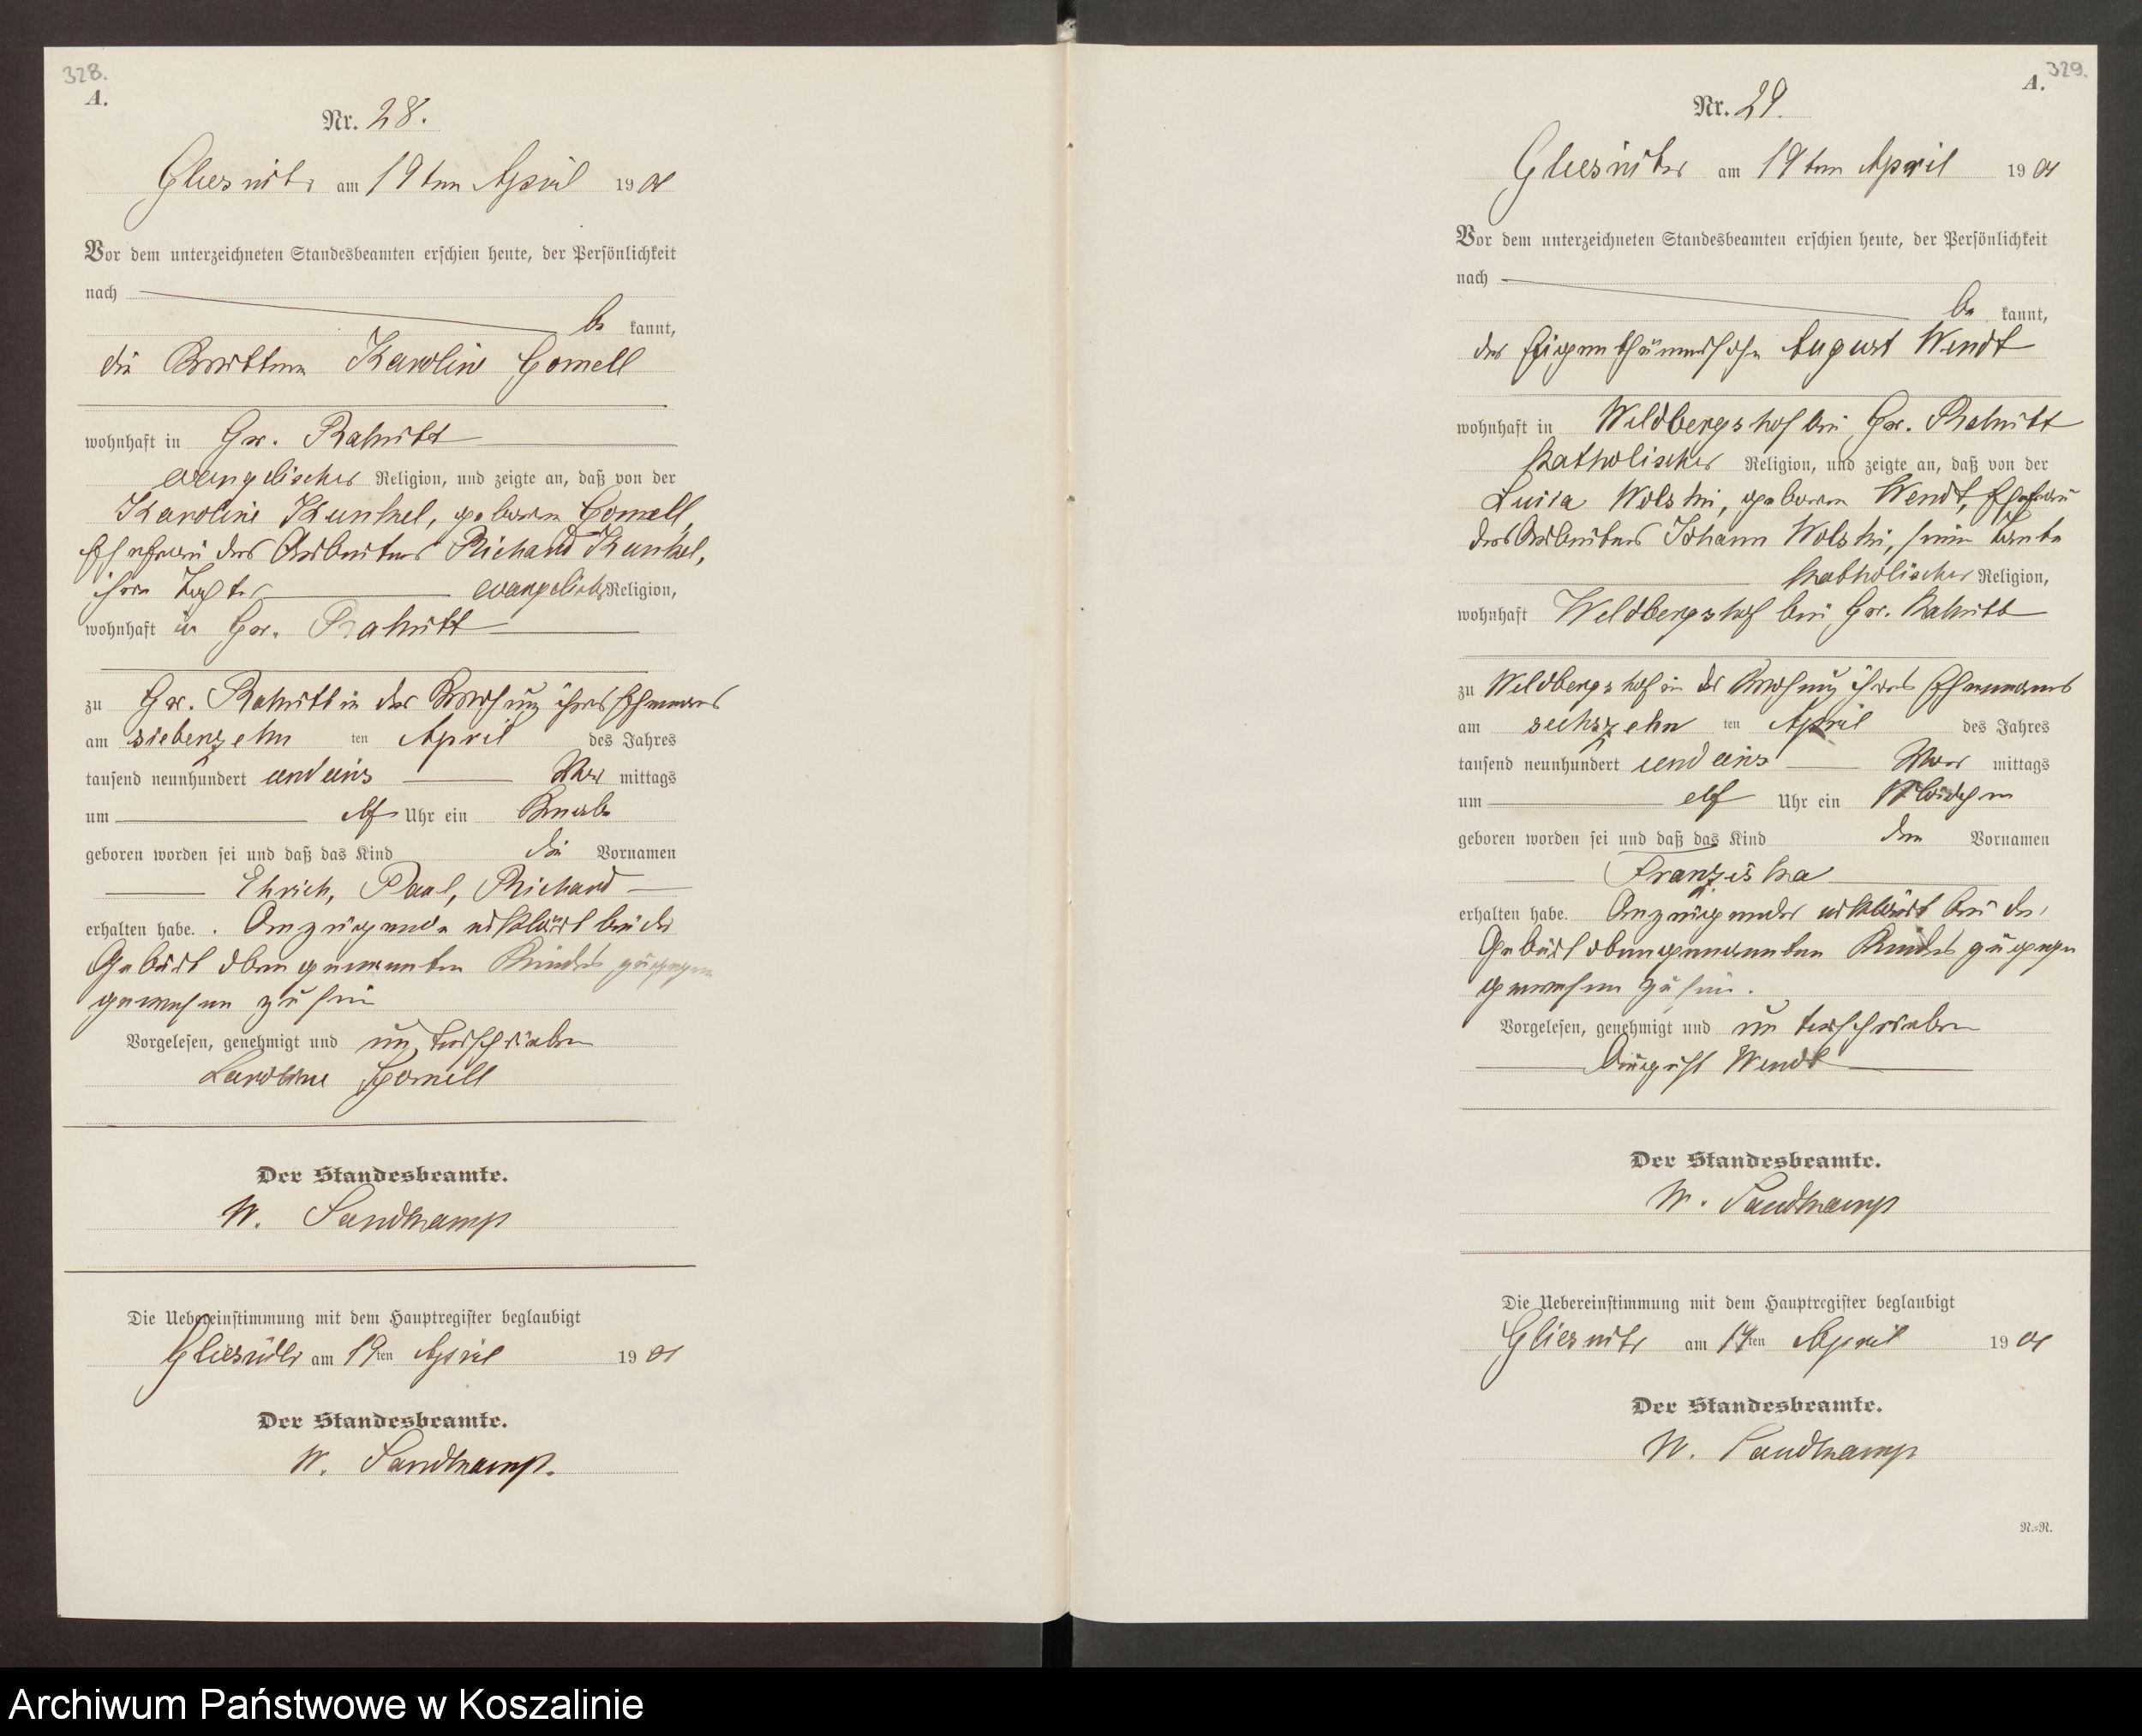 328.
A.
Nr. 28.
Gliesnitz am 19ten April 1901
Vor dem unterzeichneten Standesbeamten erschien heute, der Persönlichkeit
nach
be kannt,
die Karoline Gomell
wohnhaft in Gr. Rakitt
evangelischer Religion, und zeigte an, daß von der
Karoline Kunkel, geboren Gomell,
Ehefrau des Arbeiters Richard Kunkel,
ihre Tochter evangelisch Religion,
wohnhaft in Gr. Rakitt
zu Gr. Rakitt in der Wohnung ihres Ehemanns
am siebenzehn ten April des Jahres
tausend neunhundert und eins Vor mittags
um elf Uhr ein Knabe
geboren worden sei und daß das Kind die Vornamen
Ehrich, Paul, Richard
erhalten habe. Anzeigende erklärt bei der
Geburt obengenannten Kindes zugegen
gewesen zu sein
Vorgelesen, genehmigt und unterschrieben
Karoline Gomell
Der Standesbeamte.
W. Sandkamp
Die Uebereinstimmung mit dem Hauptregister beglaubigt
Gliesnitz am 19ten April 1901
Der Standesbeamte.
W. Sandkamp.
329.
A.
Nr. 29.
Gliesnitz am 19ten April 1901
Vor dem unterzeichneten Standesbeamten erschien heute, der Persönlichkeit
nach
be kannt,
der Eigenthümersohn August Wendt
wohnhaft in Wildbergshof bei Gr. Rakitt
katholischer Religion, und zeigte an, daß von der
Luisa Wolski, geboren Wendt, Ehefrau
des Arbeiters Johann Wolski, seine Tante
katholischer Religion,
wohnhaft Wildbergshof bei Gr. Rakitt
zu Wildbergshof in der Wohnung ihres Ehemanns
am sechszehn ten April des Jahres
tausend neunhundert und eins Vor mittags
um elf Uhr ein Mädchen
geboren worden sei und daß das Kind den Vornamen
Franziska
erhalten habe. Anzeigender erklärt bei der
Geburt obengenannten Kindes zugegen
gewesen zu sein.
Vorgelesen, genehmigt und unterschrieben
August Wendt
Der Standesbeamte.
W. Sandkamp
Die Uebereinstimmung mit dem Hauptregister beglaubigt
Gliesnitz am 19ten April 1901
Der Standesbeamte.
W. Sandkamp
N.=N.
Archiwum Państwowe w Koszalinie